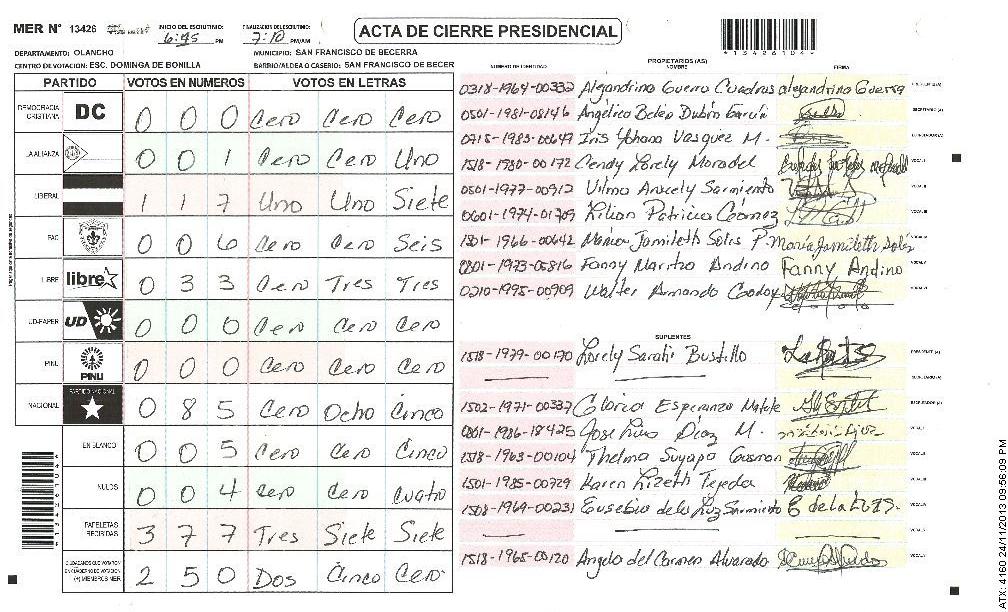 MER N° 13426 INICIO DEL ESCRUTINIO: 6:45 PM FINALIZACION DEL ESCRUTINIO: 7:10 PM/AM ACTA DE CIERRE PRESIDENCIAL
DEPARTAMENTO: OLANCHO MUNICIPIO: SAN FRANCISCO DE BECERRA
CENTRO DE VOTACION: ESC. DOMINGA DE BONILLA BARRIO/ALDEA O CASERIO: SAN FRANCISCO DE BECER
PARTIDO VOTOS EN NUMEROS VOTOS EN LETRAS
DEMOCRACIA CRISTIANA DC 0 0 0 Cero Cero Cero
LA ALIANZA 0 0 1 Cero Cero Uno
LIBERAL 1 1 7 Uno Uno Siete
PAC 0 0 6 Cero Cero Seis
LIBRE libre 0 3 3 Cero Tres Tres
UD-FAPER UD 0 0 0 Cero Cero Cero
PINU PINU 0 0 0 Cero Cero Cero
NACIONAL PARTIDO NACIONAL 0 8 5 Cero Ocho Cinco
EN BLANCO 0 0 5 Cero Cero Cinco
NULOS 0 0 4 Cero Cero Cuatro
PAPELETAS RECIBIDAS 3 7 7 Tres Siete Siete
CIUDADANOS QUE VOTARON EN CUADERNO DE VOTACION (+) MIEMBROS MER 2 5 0 Dos Cinco Cero
PROPIETARIOS (AS)
NUMERO DE IDENTIDAD NOMBRE FIRMA
0318-1964-00332 Alejandrina Guerra Cuadras alejandrina Guerra PRESIDENTE (A)
0501-1981-08146 Angélica Belén Dubón García SECRETARIO (A)
0715-1983-00649 Iris Yohana Vasquez M. ESCRUTADOR (A)
1518-1980-00172 Cendy Lorely Moradel VOCAL I
0501-1977-00912 Vilma Aracely Sarmiento VOCAL II
0601-1974-01709 Lilian Patricia Gómez VOCAL III
1501-1966-00642 María Jamileth Soles P. María Jamileth Soles VOCAL IV
0801-1973-05816 Fanny Maritza Andino Fanny Andino VOCAL V
0210-1995-00909 Walter Armando Godoy
SUPLENTES
1518-1979-00170 Lorely Sarahi Bustillo PRESIDENTE (A)
SECRETARIO (A)
1502-1971-00337 Gloria Esperanza ESCRUTADOR (A)
0801-1986-18425 Jose Luis Díaz M. VOCAL I
1518-1963-00104 Thelma Suyapa Guzman VOCAL II
1501-1985-00729 Karen Lizeth Tejeda VOCAL III
1508-1969-00231 Eusebio de la Luz Sarmiento E de la Luz S. VOCAL IV
VOCAL V
1518-1965-00120 Angela del Carmen Alvarado
ATX: 4160 24/11/2013 09:56:09 PM